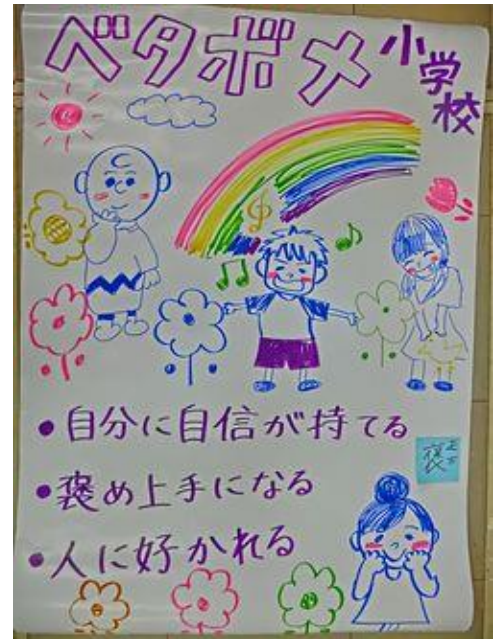 ベタボメ小学校
・自分に自信が持てる
・褒め上手になる
・人に好かれる